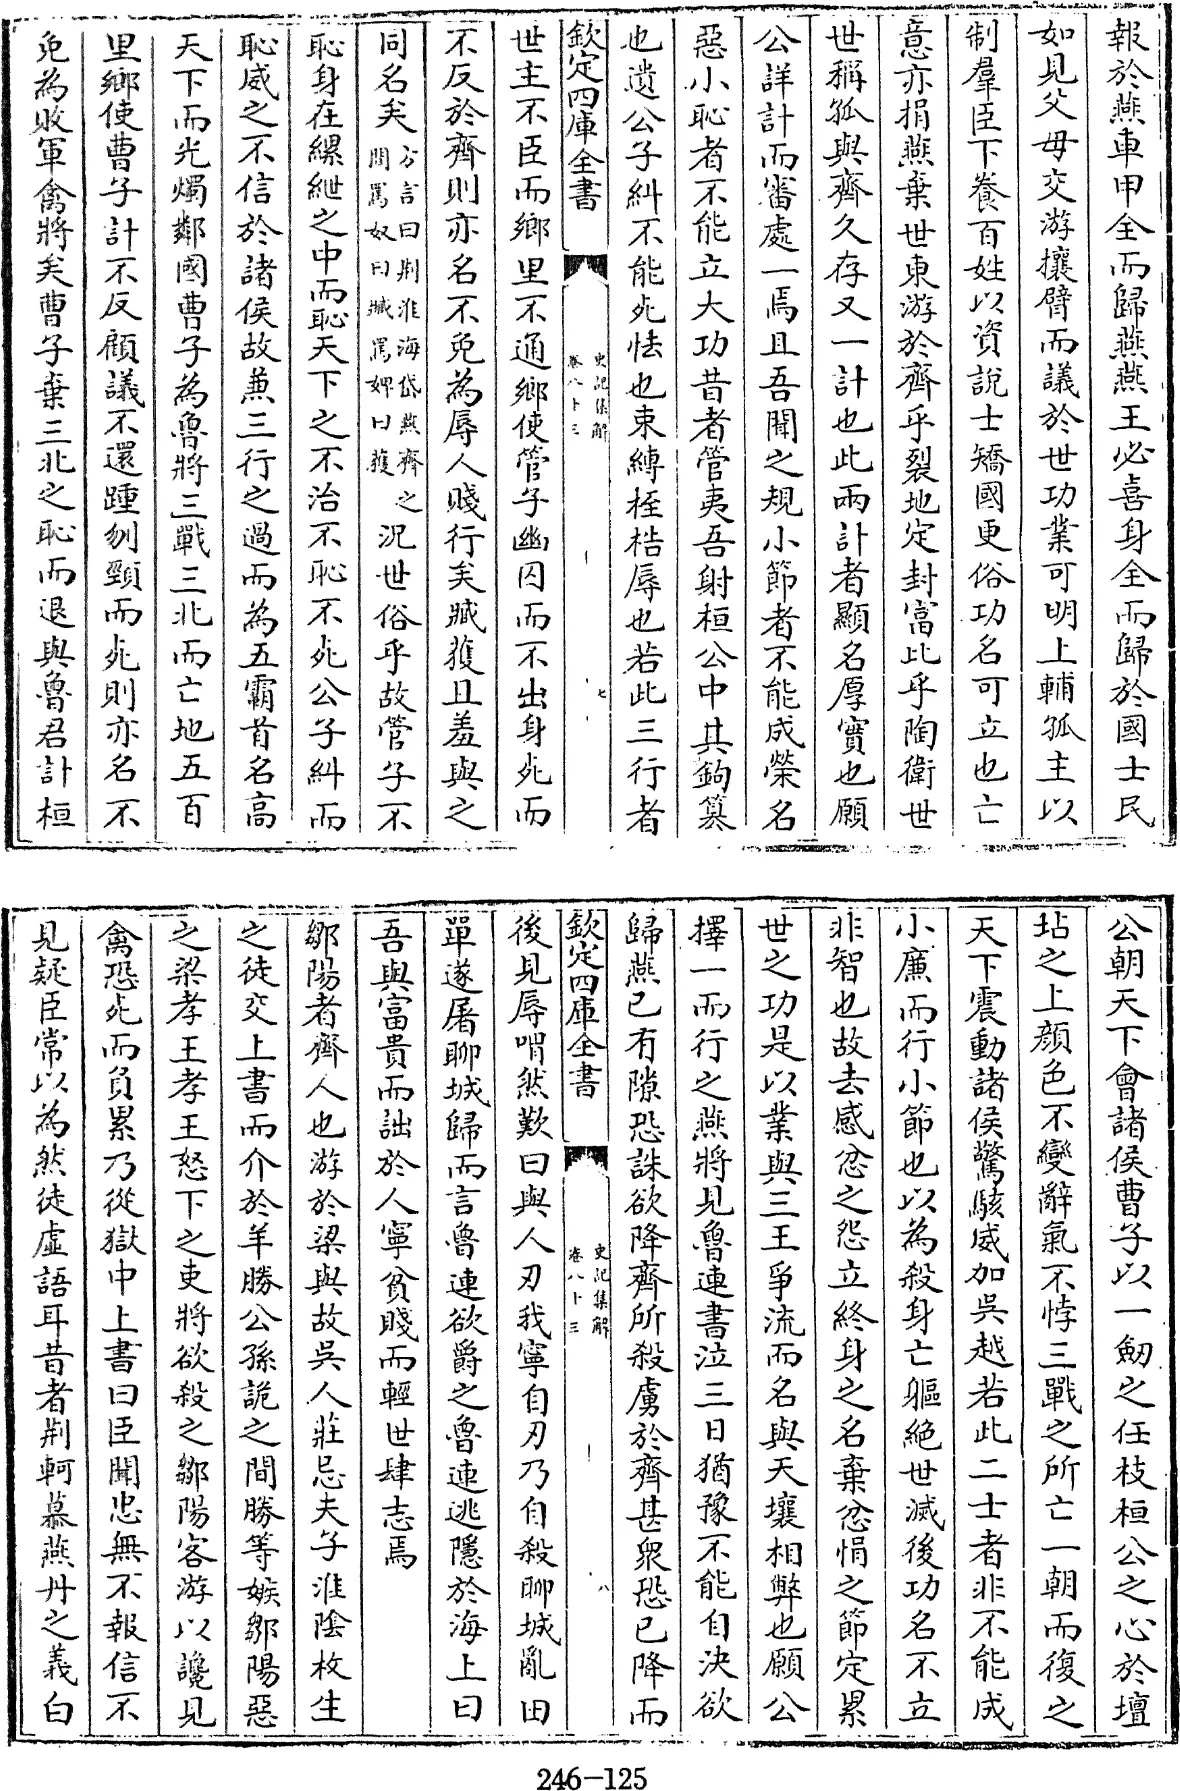 報於燕車甲全而歸燕燕王必喜身全而歸於國士民
如見父母交游攘臂而議於世功業可明上輔孤主以
制羣臣下養百姓以資説士矯國更俗功名可立也亡
意亦捐燕棄世東游於齊乎裂地定封富比乎陶衛世
世稱孤與齊久存又一計也此兩計者顯名厚實也願
公詳計而審處一焉且吾聞之規小節者不能成榮名
惡小恥者不能立大功昔者管夷吾射桓公中其鉤簒
也遺公子糾不能死怯也束縛桎梏辱也若此三行者
欽定四庫全書
史記集解
卷八十三
七
世主不臣而鄉里不通鄉使管子幽囚而不出身死而
不反於齊則亦名不免為辱人賤行矣臧獲且羞與之
同名矣方言曰荆淮海岱燕齊之間罵奴曰臧罵婢曰獲況世俗乎故管子不
恥身在縲紲之中而恥天下之不治不恥不死公子糾而
恥威之不信於諸侯故兼三行之過而為五霸首名高
天下而光燭鄰國曹子為魯將三戰三北而亡地五百
里鄉使曹子計不反顧議不還踵刎頸而死則亦名不
免為敗軍禽將矣曹子棄三北之恥而退與魯君計桓
公朝天下會諸侯曹子以一劒之任枝桓公之心於壇
坫之上顔色不變辭氣不悖三戰之所亡一朝而復之
天下震動諸侯驚駭威加吳越若此二士者非不能成
小廉而行小節也以為殺身亡軀絶世滅後功名不立
非智也故去感忿之怨立終身之名棄忿悁之節定累
世之功是以業與三王爭流而名與天壤相弊也願公
擇一而行之燕將見魯連書泣三日猶豫不能自決欲
歸燕已有隙恐誅欲降齊所殺虜於齊甚衆恐已降而
欽定四庫全書
史記集解
卷八十三
八
後見辱喟然歎曰與人刃我寧自刃乃自殺聊城亂田
單遂屠聊城歸而言魯連欲爵之魯連逃隱於海上曰
吾與富貴而詘於人寧貧賤而輕世肆志焉
鄒陽者齊人也游於梁與故吳人莊忌夫子淮陰枚生
之徒交上書而介於羊勝公孫詭之間勝等嫉鄒陽惡
之梁孝王孝王怒下之吏將欲殺之鄒陽客游以讒見
禽恐死而負累乃從獄中上書曰臣聞忠無不報信不
見疑臣常以為然徒虛語耳昔者荆軻慕燕丹之義白
246-125